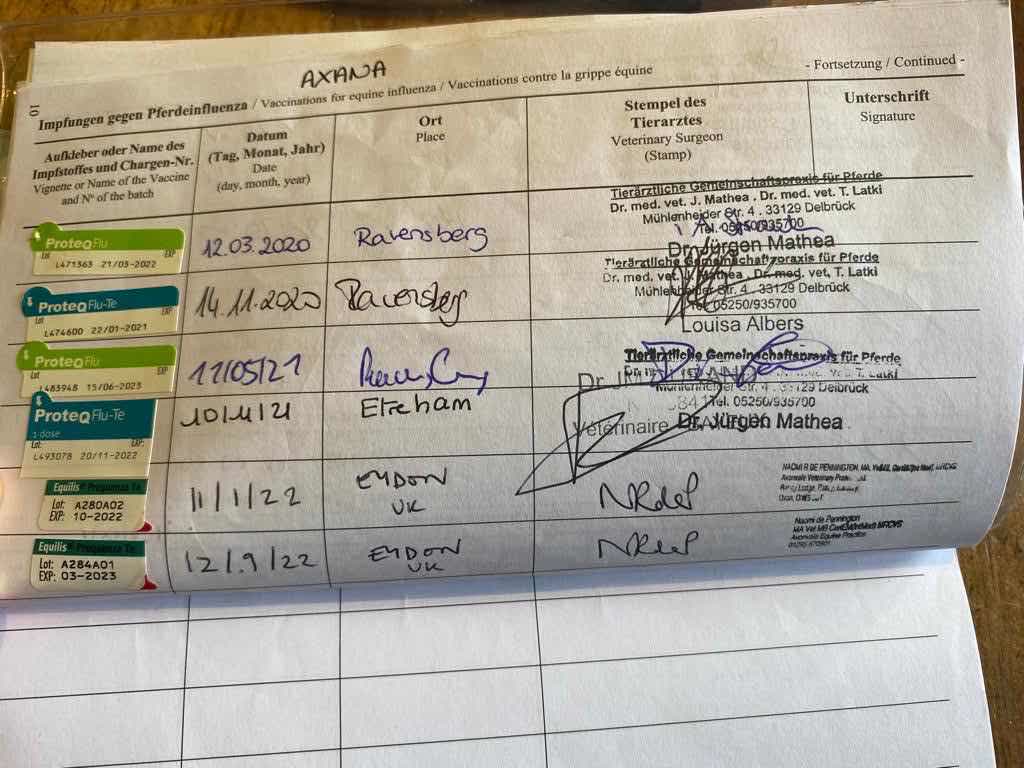 AXANA
- Fortsetzung / Continued -
10
Impfungen gegen Pferdeinfluenza / Vaccinations for equine influenza / Vaccinations contre la grippe équine
Aufkleber oder Name des
Impfstoffes und Chargen-Nr.
Vignette or Name of the Vaccine
and Nº of the batch
Datum
(Tag, Monat, Jahr)
Date
(day, month, year)
Ort
Place
Stempel des
Tierarztes
Veterinary Surgeon
(Stamp)
Unterschrift
Signature
ProteqFlu
Lot EXP
L471363 21/03/2022
12.03.2020
Ravensberg
Tierärztliche Gemeinschaftspraxis für Pferde
Dr. med. vet. J. Mathea . Dr. med. vet. T. Latki
Mühlenheider Str. 4 . 33129 Delbrück
Tel. 05250/935700
Dr. Jürgen Mathea
ProteqFlu-Te
Lot EXP
L474600 22/01-2021
14.11.2020
Ravensberg
Tierärztliche Gemeinschaftspraxis für Pferde
Dr. med. vet. J. Mathea . Dr. med. vet. T. Latki
Mühlenheider Str. 4 . 33129 Delbrück
Tel. 05250/935700
Louisa Albers
ProteqFlu
Lot EXP
L483948 15/06-2023
11/05/21
Tierärztliche Gemeinschaftspraxis für Pferde
vet. T. Latki
Mühlenheider Str. 4 . 33129 Delbrück
Tel. 05250/935700
Dr. Jürgen Mathea
ProteqFlu-Te
1-dose
Lot: EXP:
L493078 20/11-2022
10/11/21
Etreham
Dr.
Vétérinaire
Equilis Prequenza Te
Lot: A280A02
EXP: 10-2022
11/1/22
EYDON
UK
NRdeP
NAOMI R DE PENNINGTON, MA, VetMB, MRCVS
Avonvale Veterinary
Lodge,
Oxon,
Equilis Prequenza Te
Lot: A284A01
EXP: 03-2023
12/9/22
EYDON
UK
NRdeP
Naomi de Pennington
MA Vet MB CertEM(IntMed) MRCVS
Avonvale Equine Practice